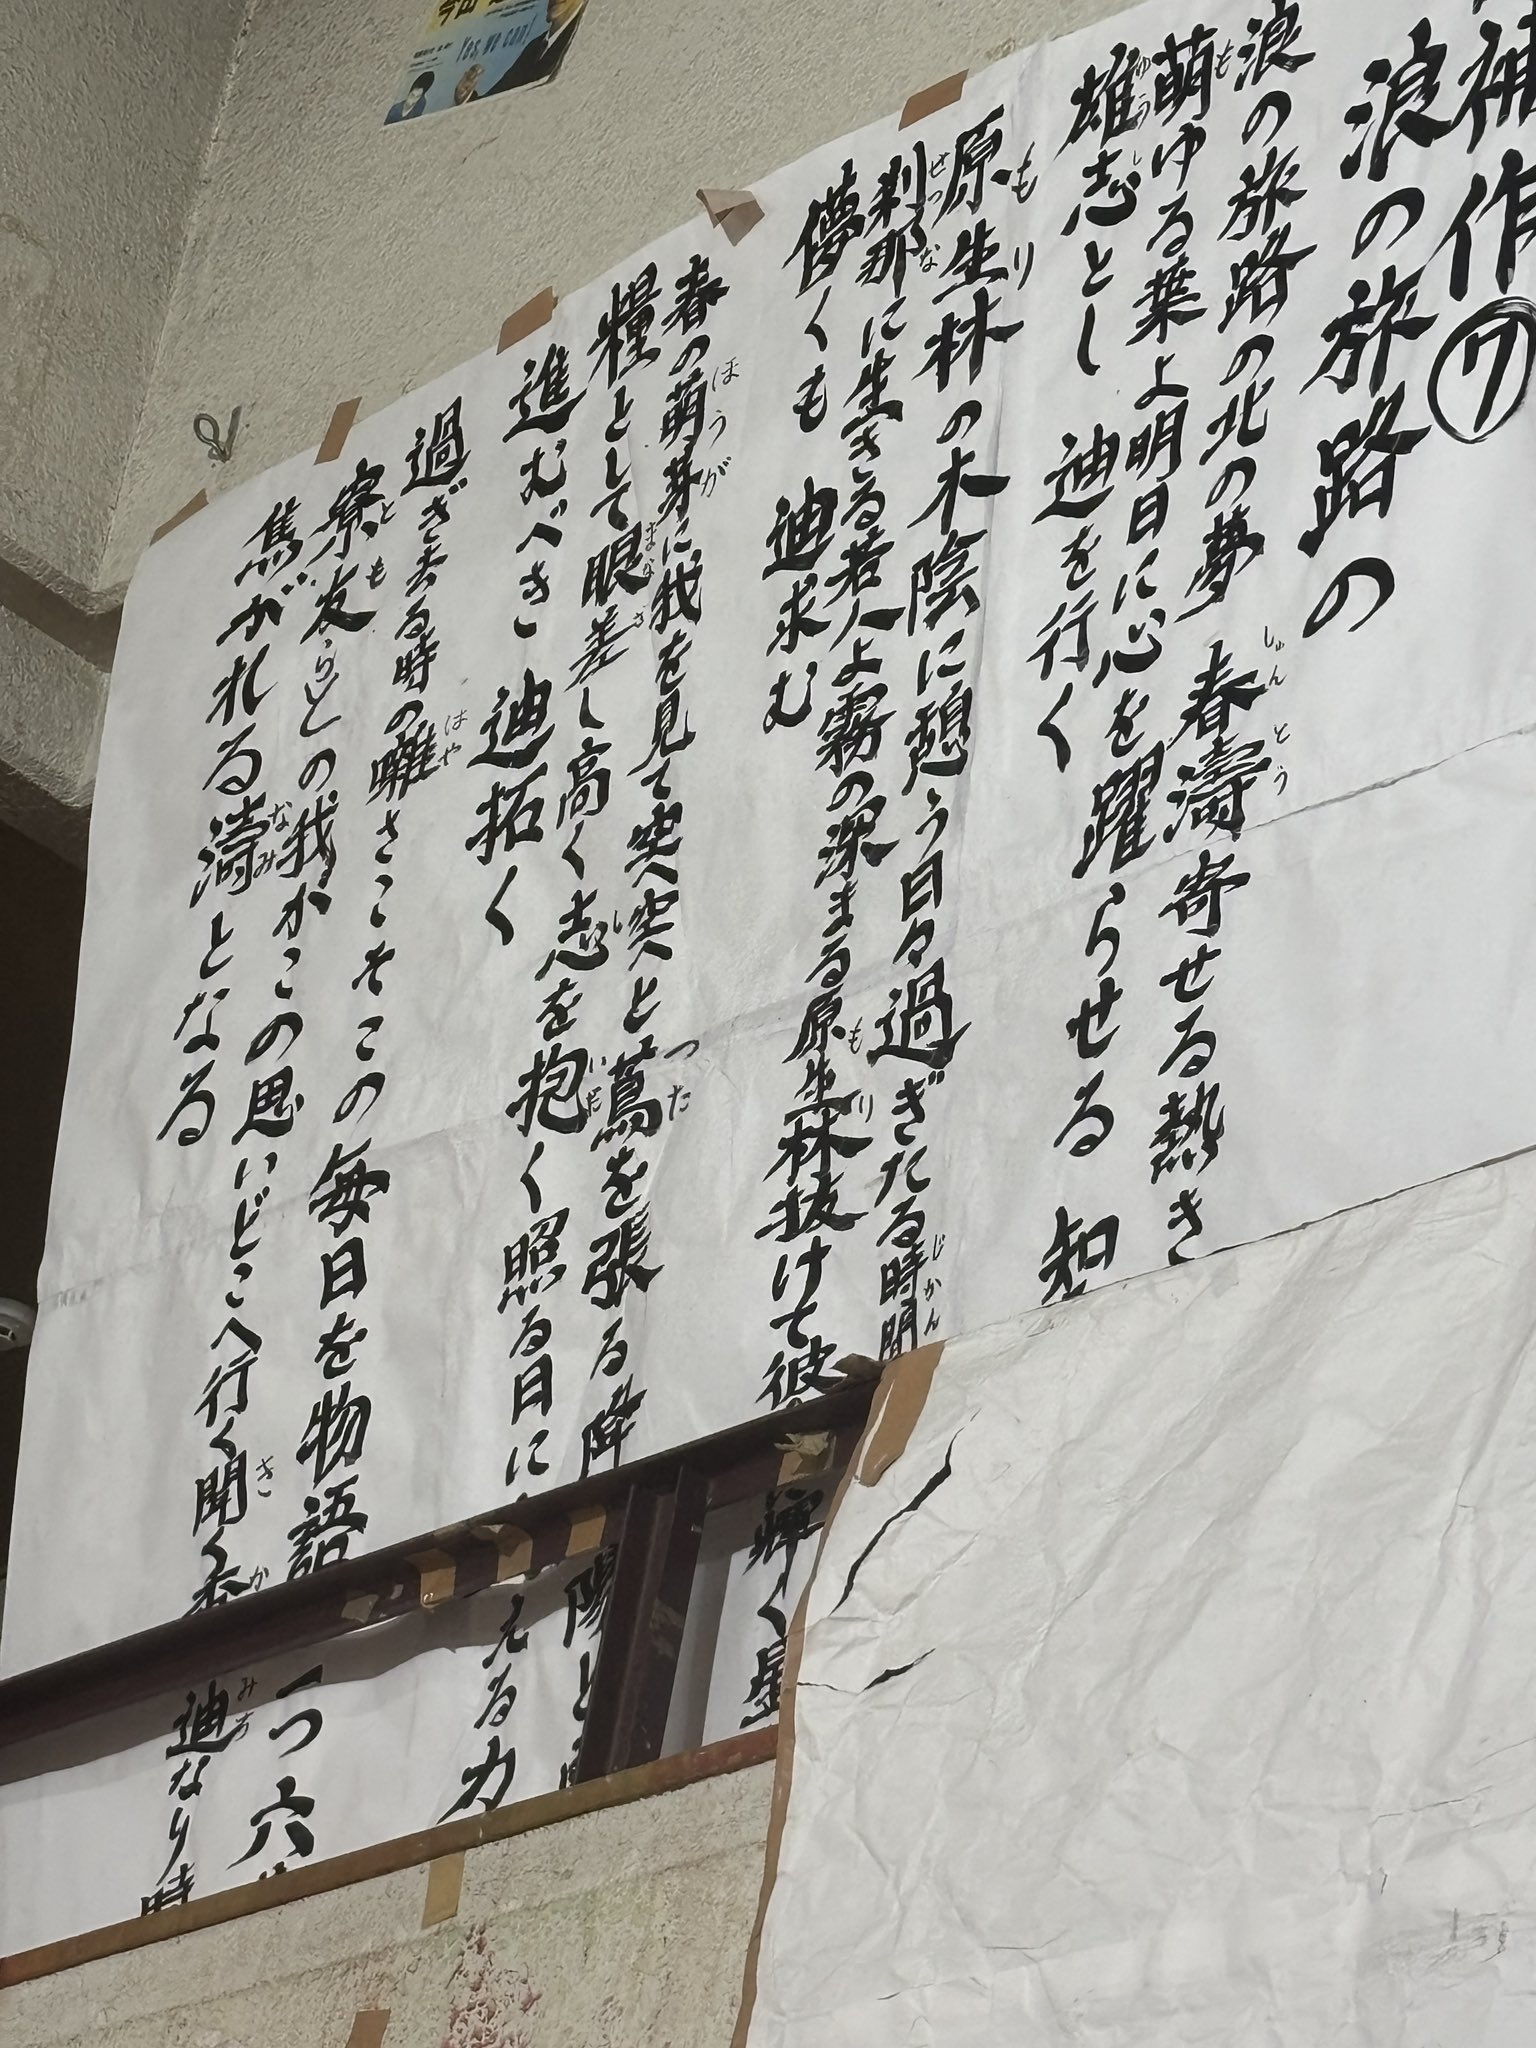 補作⑦
浪の旅路の
浪の旅路の北の夢 春濤寄せる熱き
萌ゆる葉よ明日に心を躍らせる 知
雄志とし 迪を行く
原生林の木陰に憩う日々過ぎたる時間
刹那に生きる若人よ霧の深まる原生林抜けて彼 輝く星
儚くも 迪求む
春の萌芽に我を見て突へ突へと蔦を張る降 陽と
糧として眼差し高く志を抱く照る日に える力
進むべき 迪拓く
過ぎ去る時の囃さこそこの毎日を物語 一つ六
寮友らとの我がこの思いどこへ行く聞く香 迪なり時
焦がれる濤となる
Yes, we can!